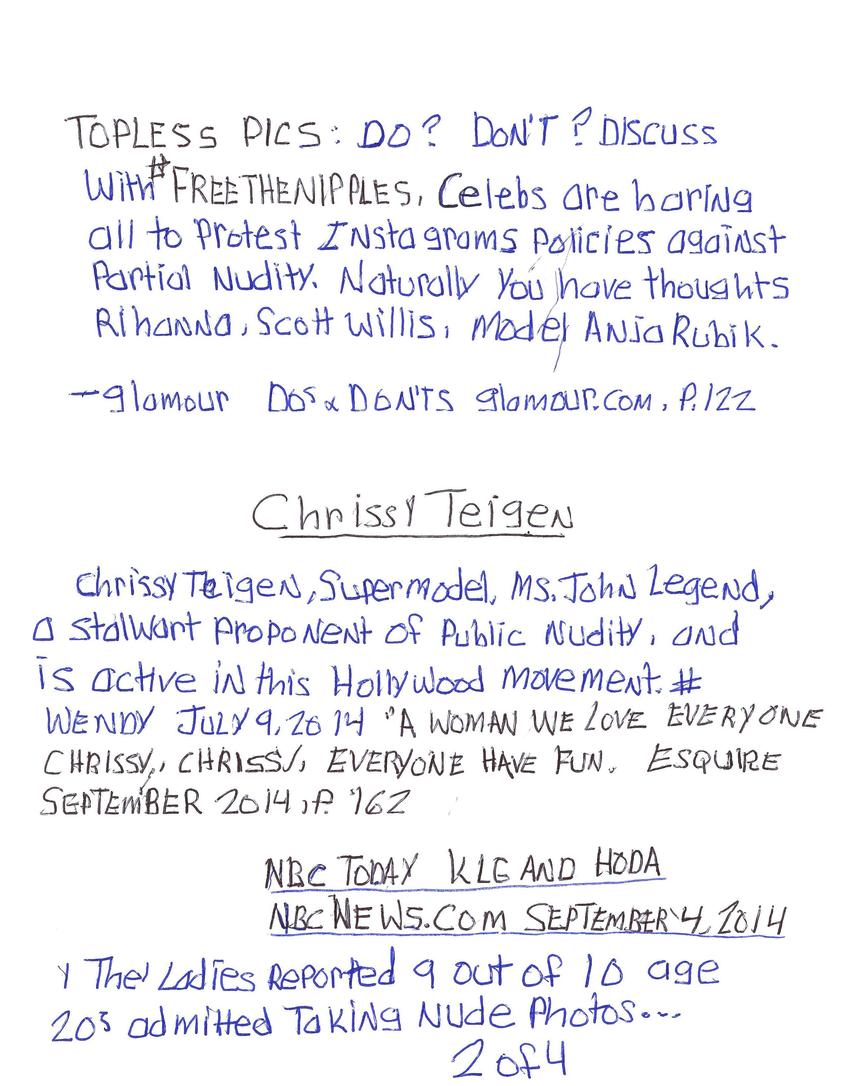 TOPLESS PICS: DO? DON'T? DISCUSS
With #FREETHENIPPLES, Celebs are baring
all to Protest INstagrams Policies against
Partial Nudity. Naturally You have thoughts
Rihanna, Scott Willis, Model ANJa Rubik.
-glamour DOs & DON'TS glamour.com, P.122
Chrissy Teigen
Chrissy Teigen, Supermodel, Ms. John Legend,
a stalwart ProPoNent of Public Nudity, and
is active iN this Hollywood movement. #
WENDY JULY 9, 2014 "A WOMAN WE LOVE EVERYONE
CHRISSY,, CHRISSY, EVERYONE HAVE FUN. ESQUIRE
SEPTEMBER 2014, P. 162
NBC TODAY KLG AND HODA
NBCNEWS.COM SEPTEMBER 4, 2014
The Ladies Reported 9 out of 10 age
20s admitted TakiNg Nude Photos...
2 of 4